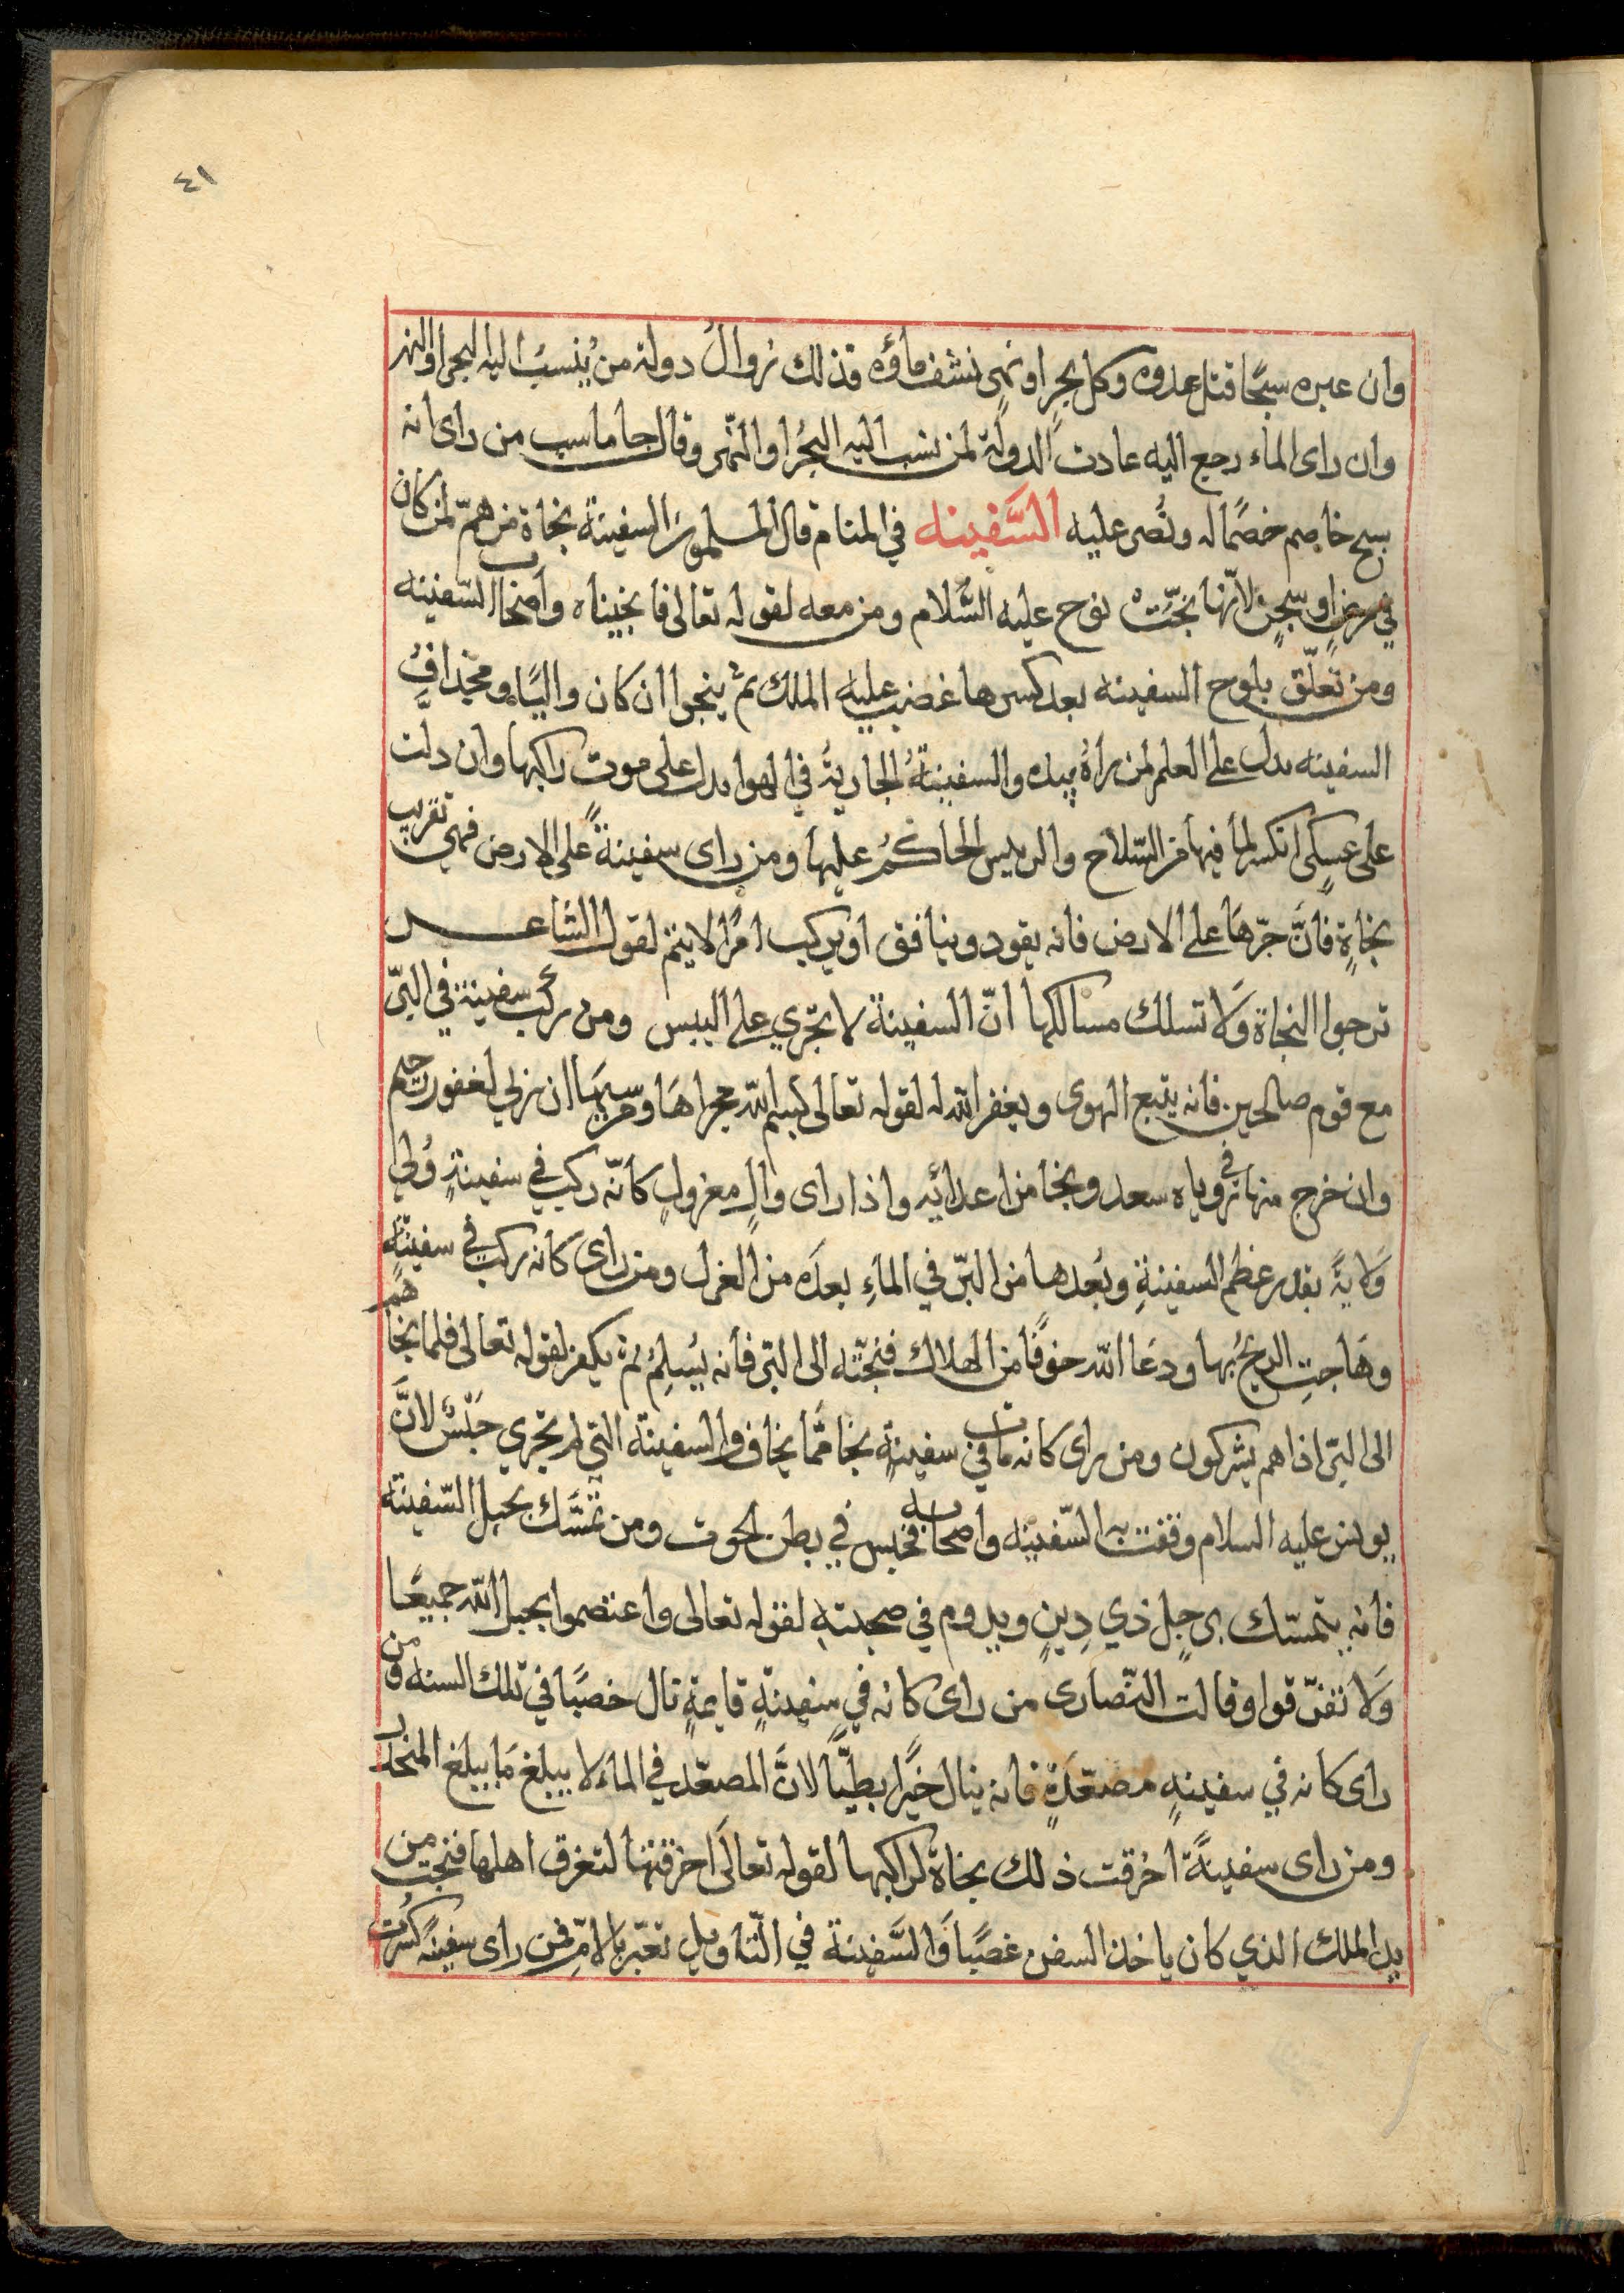 ٤١
وان عبره سبحًا قتل عدوه وكل بحرٍ او نهرٍ نشف ماؤه فذلك زوالُ دولة من يُنسبُ اليه البحر او النهر
وان راى الماء رجع اليه عادت الدولة لمن نسب اليه البحُر او النّهر وقال جاماسب من راى انه
يسبح خاصم خصمًا له ونُصر عليه السَّفينه في المنام قال المسلمون السفينة نجاة من همّ لمن كان
في مرض او سجنٍ لانّها نجّت نوح عليه السَّلام ومن معه لقوله تعالى فانجيناه واصحاب السّفينه
ومن تعلّق بلوح السفينه بعد كسرها غضب عليه الملك ثم ينجوا ان كان واليًا ومجدافُ
السفينه يدل على العلم لمن رأهُ بيده والسفينةُ الجاريةُ في الهوا يدل على موت راكبها وان دلت
على عسكرٍ انكسر لما فيها من السّلاح والريس الحاكمُ عليها ومن راى سفينةً على الارض فهي تقريب
نجاةٍ فانَّ جرّهَا على الارض فانه يقود وينافق او يركب امرًا لا يتم لقول الشاعـــر
ترجوا النجاة وَلا تسلك مسالكها انّ السفينة لا تجري على اليبس ومن ركب سفينة في البرّ
مع قوم صالحين فانه يتبع الهوى ويغفر الله له لقوله تعالى بسم الله مجراهَا ومرسيهَا ان ربي لغفور رحيم
وان خرج منها في روياه سعد ونجا من اعدائه واذا راى والٍ معزولٍ كانّه ركب في سفينةٍ وُلي
وَلايةً بقدر عظم السفينةِ وبُعدها من البرّ في الماءِ بعدَه من العزل ومن راى كانه ركب في سفينة
وهَاجتِ الريحُ بها ودعَا الله خوفًا من الهلاك فنجته الى البرّ فانه يُسلِمُ ثم يكفر لقوله تعالى فلما نجاهم
الى البرّ اذا هم يشركون ومن راى كانه مات في سفينةٍ نجا ممّا يخاف والسفينة التي لم تجري حبْسٌ لانَّ
يونس عليه السلام وقفت به السّفينه واصحابه فحبس في بطن الحوت ومن تمسَّك بحبل السّفينة
فانه يتمسّك برجلٍ ذي دِينٍ ويدوم في صحبتهِ لقوله تعالى واعتصموا بحبل الله جميعًا
وَلا تفرّقوا وقالت النّصارى من راى كانه في سفينةٍ قايمةٍ نال خصبًا في تلك السنه ومن
راى كانه في سفينةٍ مصعّدَةٍ فانه ينال خيرًا بطيًّا لانَّ المصعّد في الماءَ لا يبلغ مَا يبلغ المنحدر
ومن راى سفينةً اخرقت ذلك نجاة لراكبها لقوله تعالَى اخرقتها لتغرق اهلها فنجت من
يد الملك الذي كان ياخذ السفن غصبًا وَالسَّفينة في التّاويل تعبّر بالامّ فمن راى سفينة كُسّرت